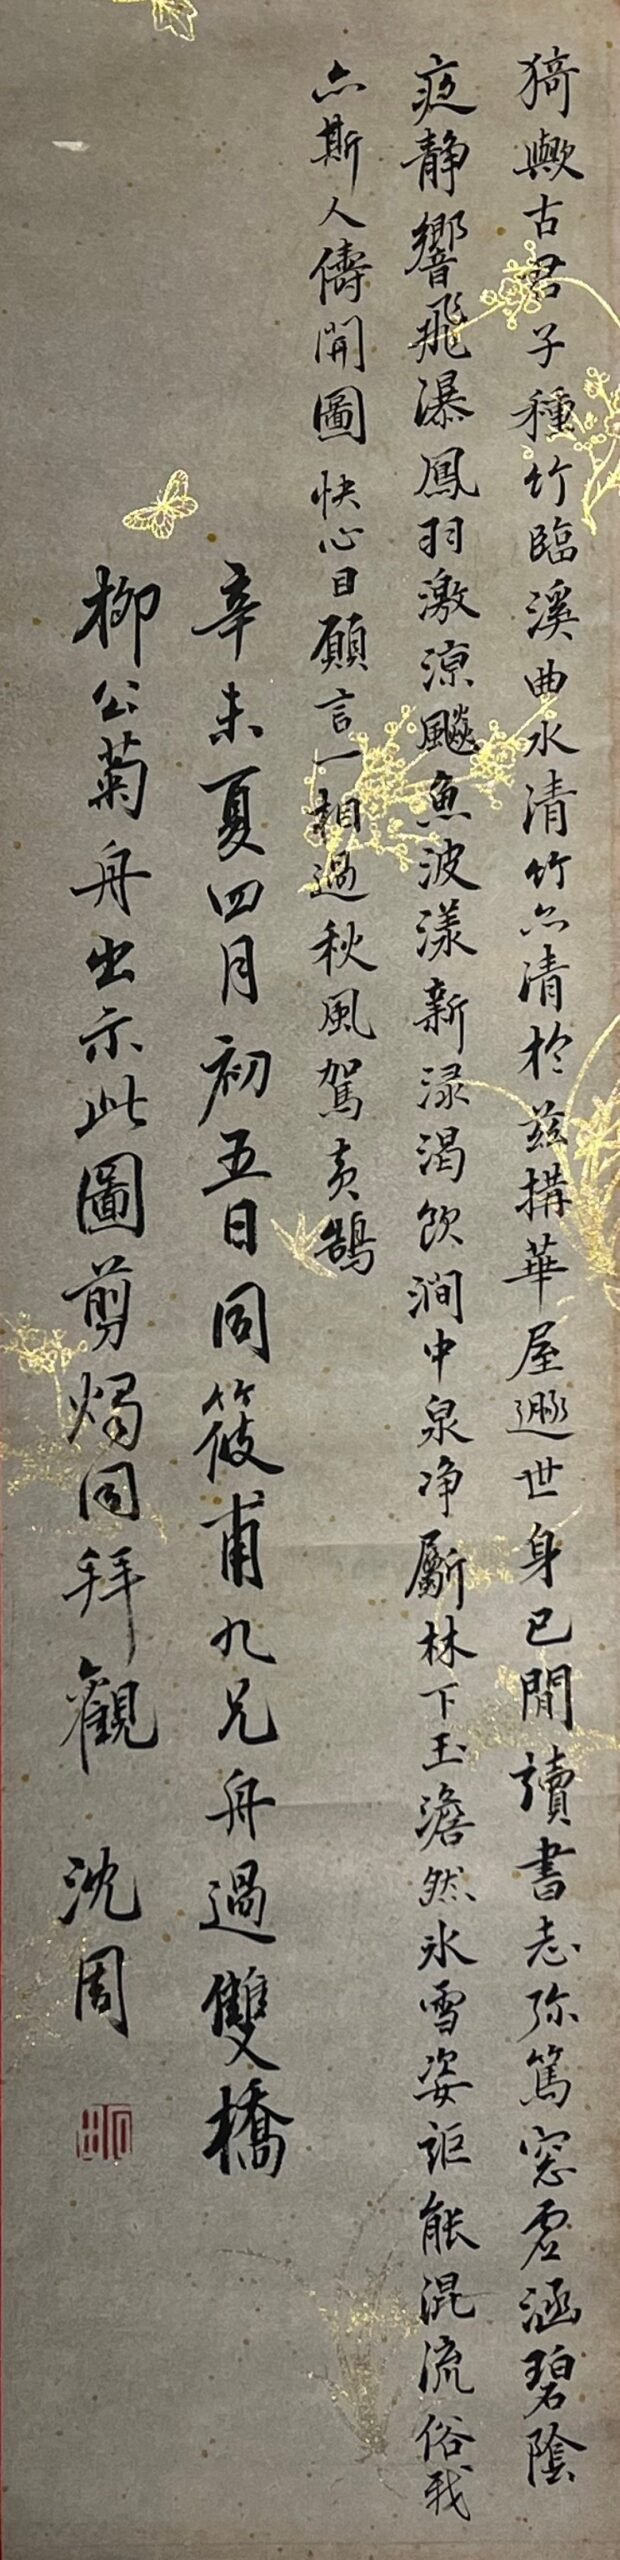 猗歟古君子種竹臨溪曲水清竹亦清於茲構華屋遯世身已閒讀書志弥篤窓虛涵碧陰
庭靜響飛瀑鳳羽激涼飈魚波漾新渌渴飲澗中泉净斸林下玉澹然冰雪姿詎能混流俗我
亦斯人儔開圖快心目願言一相過秋風駕黃鵠
辛未夏四月初五日同筱甫九兄舟過雙橋
柳公菊舟出示此圖剪燭同拜觀 沈周